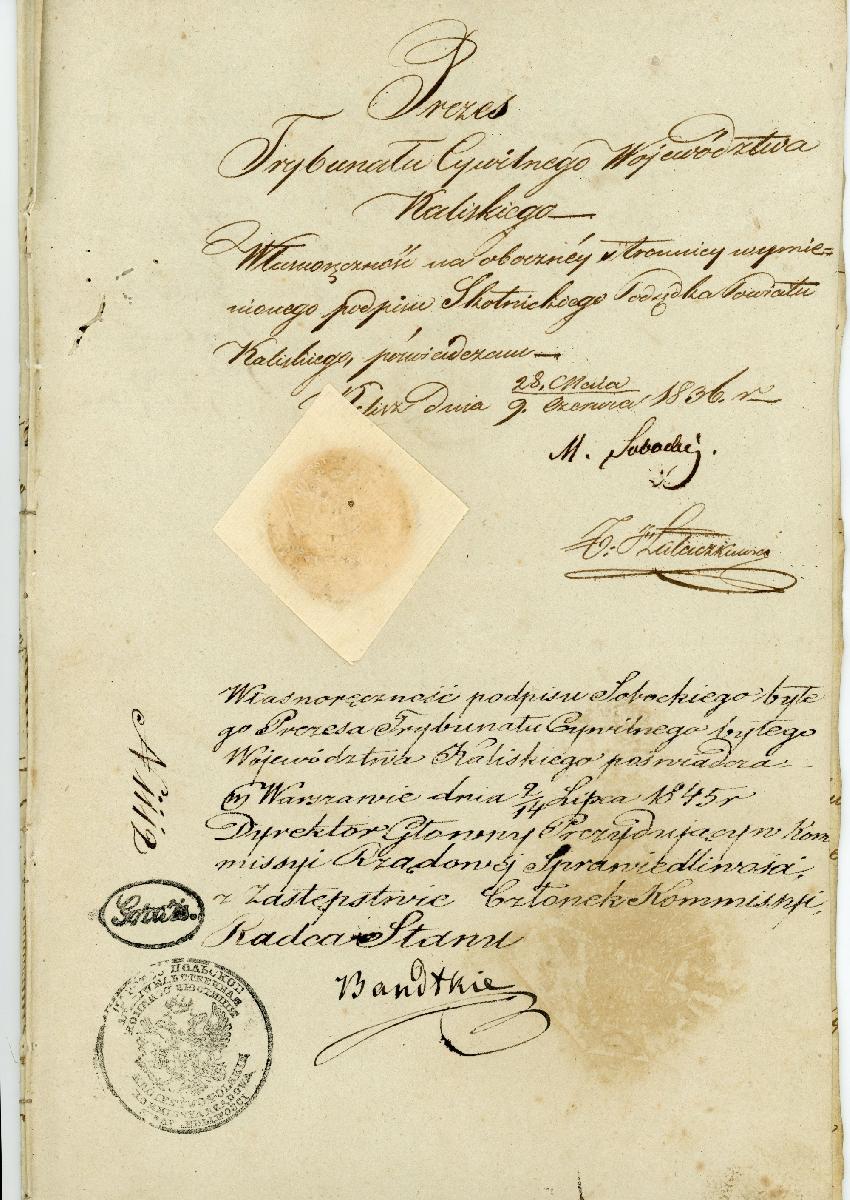 Prezes
Trybunału Cywilnego Województwa
Kaliskiego
Własnoręczność na obocznéy stronnicy wymie=
nionego podpisu Skotnickiego Podsędka Powiatu
Kaliskiego, poświadczam
Kalisz Dnia 28. Maia / 9. Czerwca 1836. r
M. Sobocki.
Własnoręczność podpisu Sobockiego byłe
go Prezesa Trybunału Cywilnego byłego
Województwa Kaliskiego poświadcza
w Warszawie dnia 2/14 Lipca 1845 r
Dyrektor Głowny Prezydujący w Kom
missyi Rządowéj Sprawiedliwości,
z Zastępstwie Członek Kommissyi,
Radca Stanu
Bandtkie